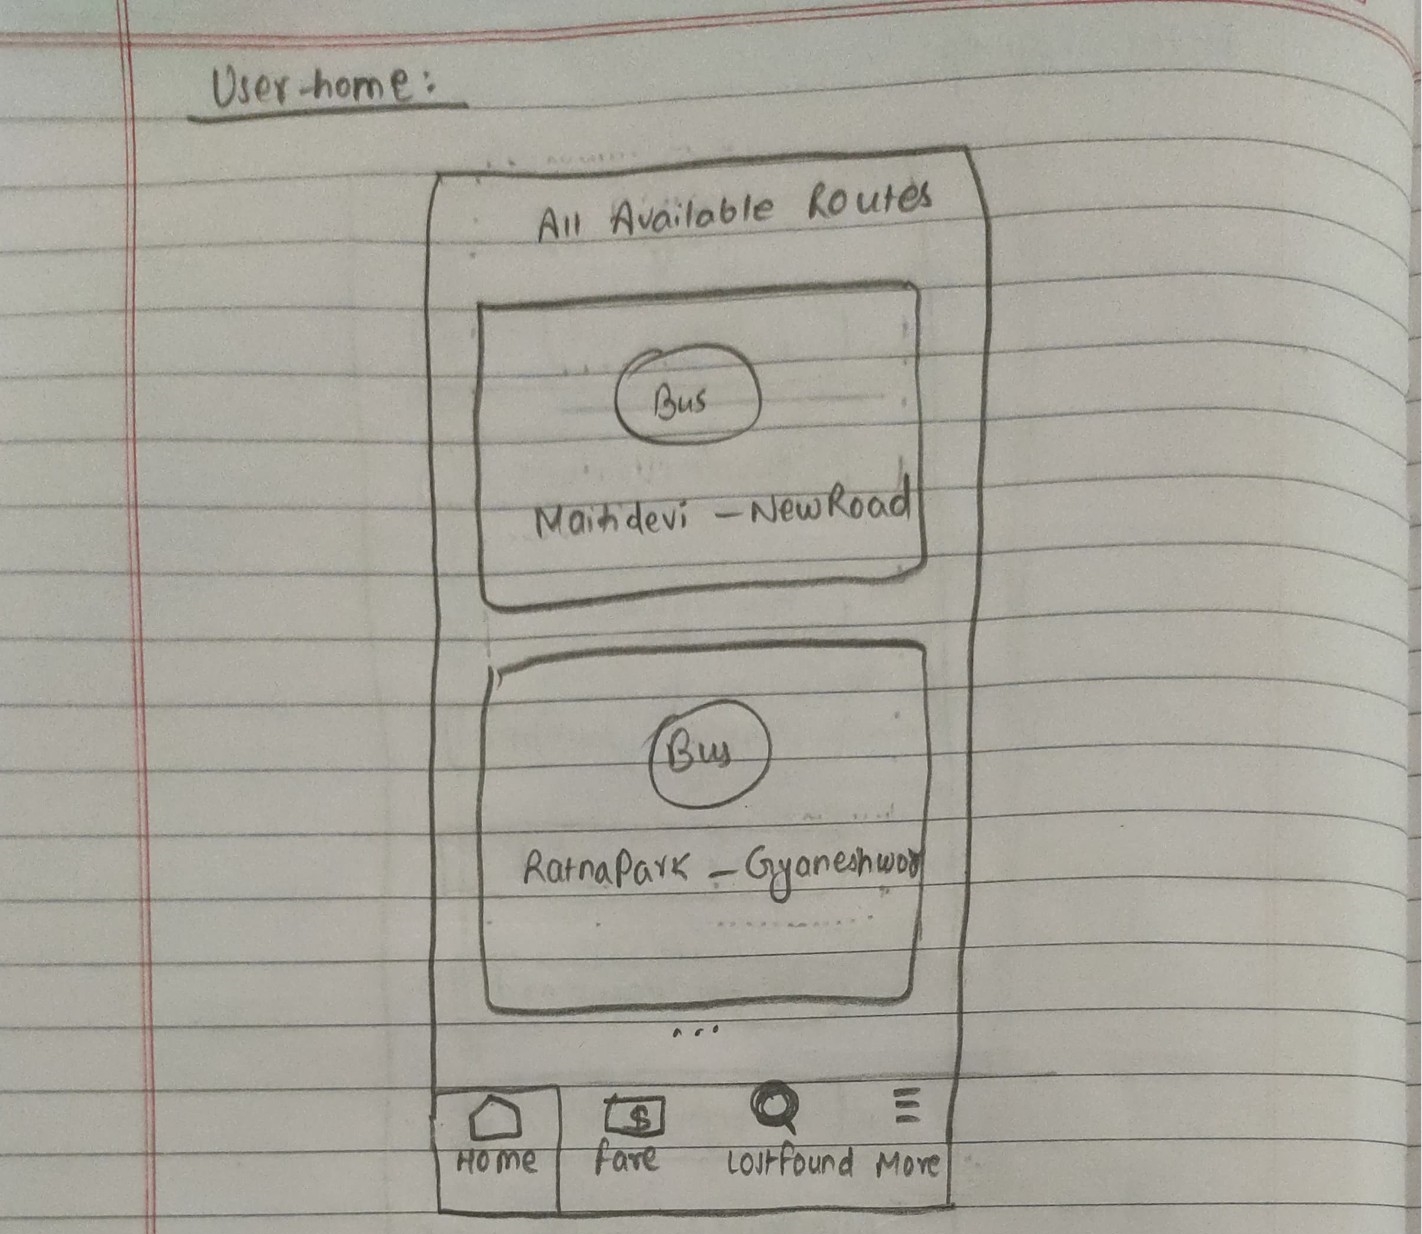 User-home:
All Available Routes
Bus
Maitidevi - NewRoad
Bus
RatnaPark - Gyaneshwor
...
$
Home fare Lostfound More